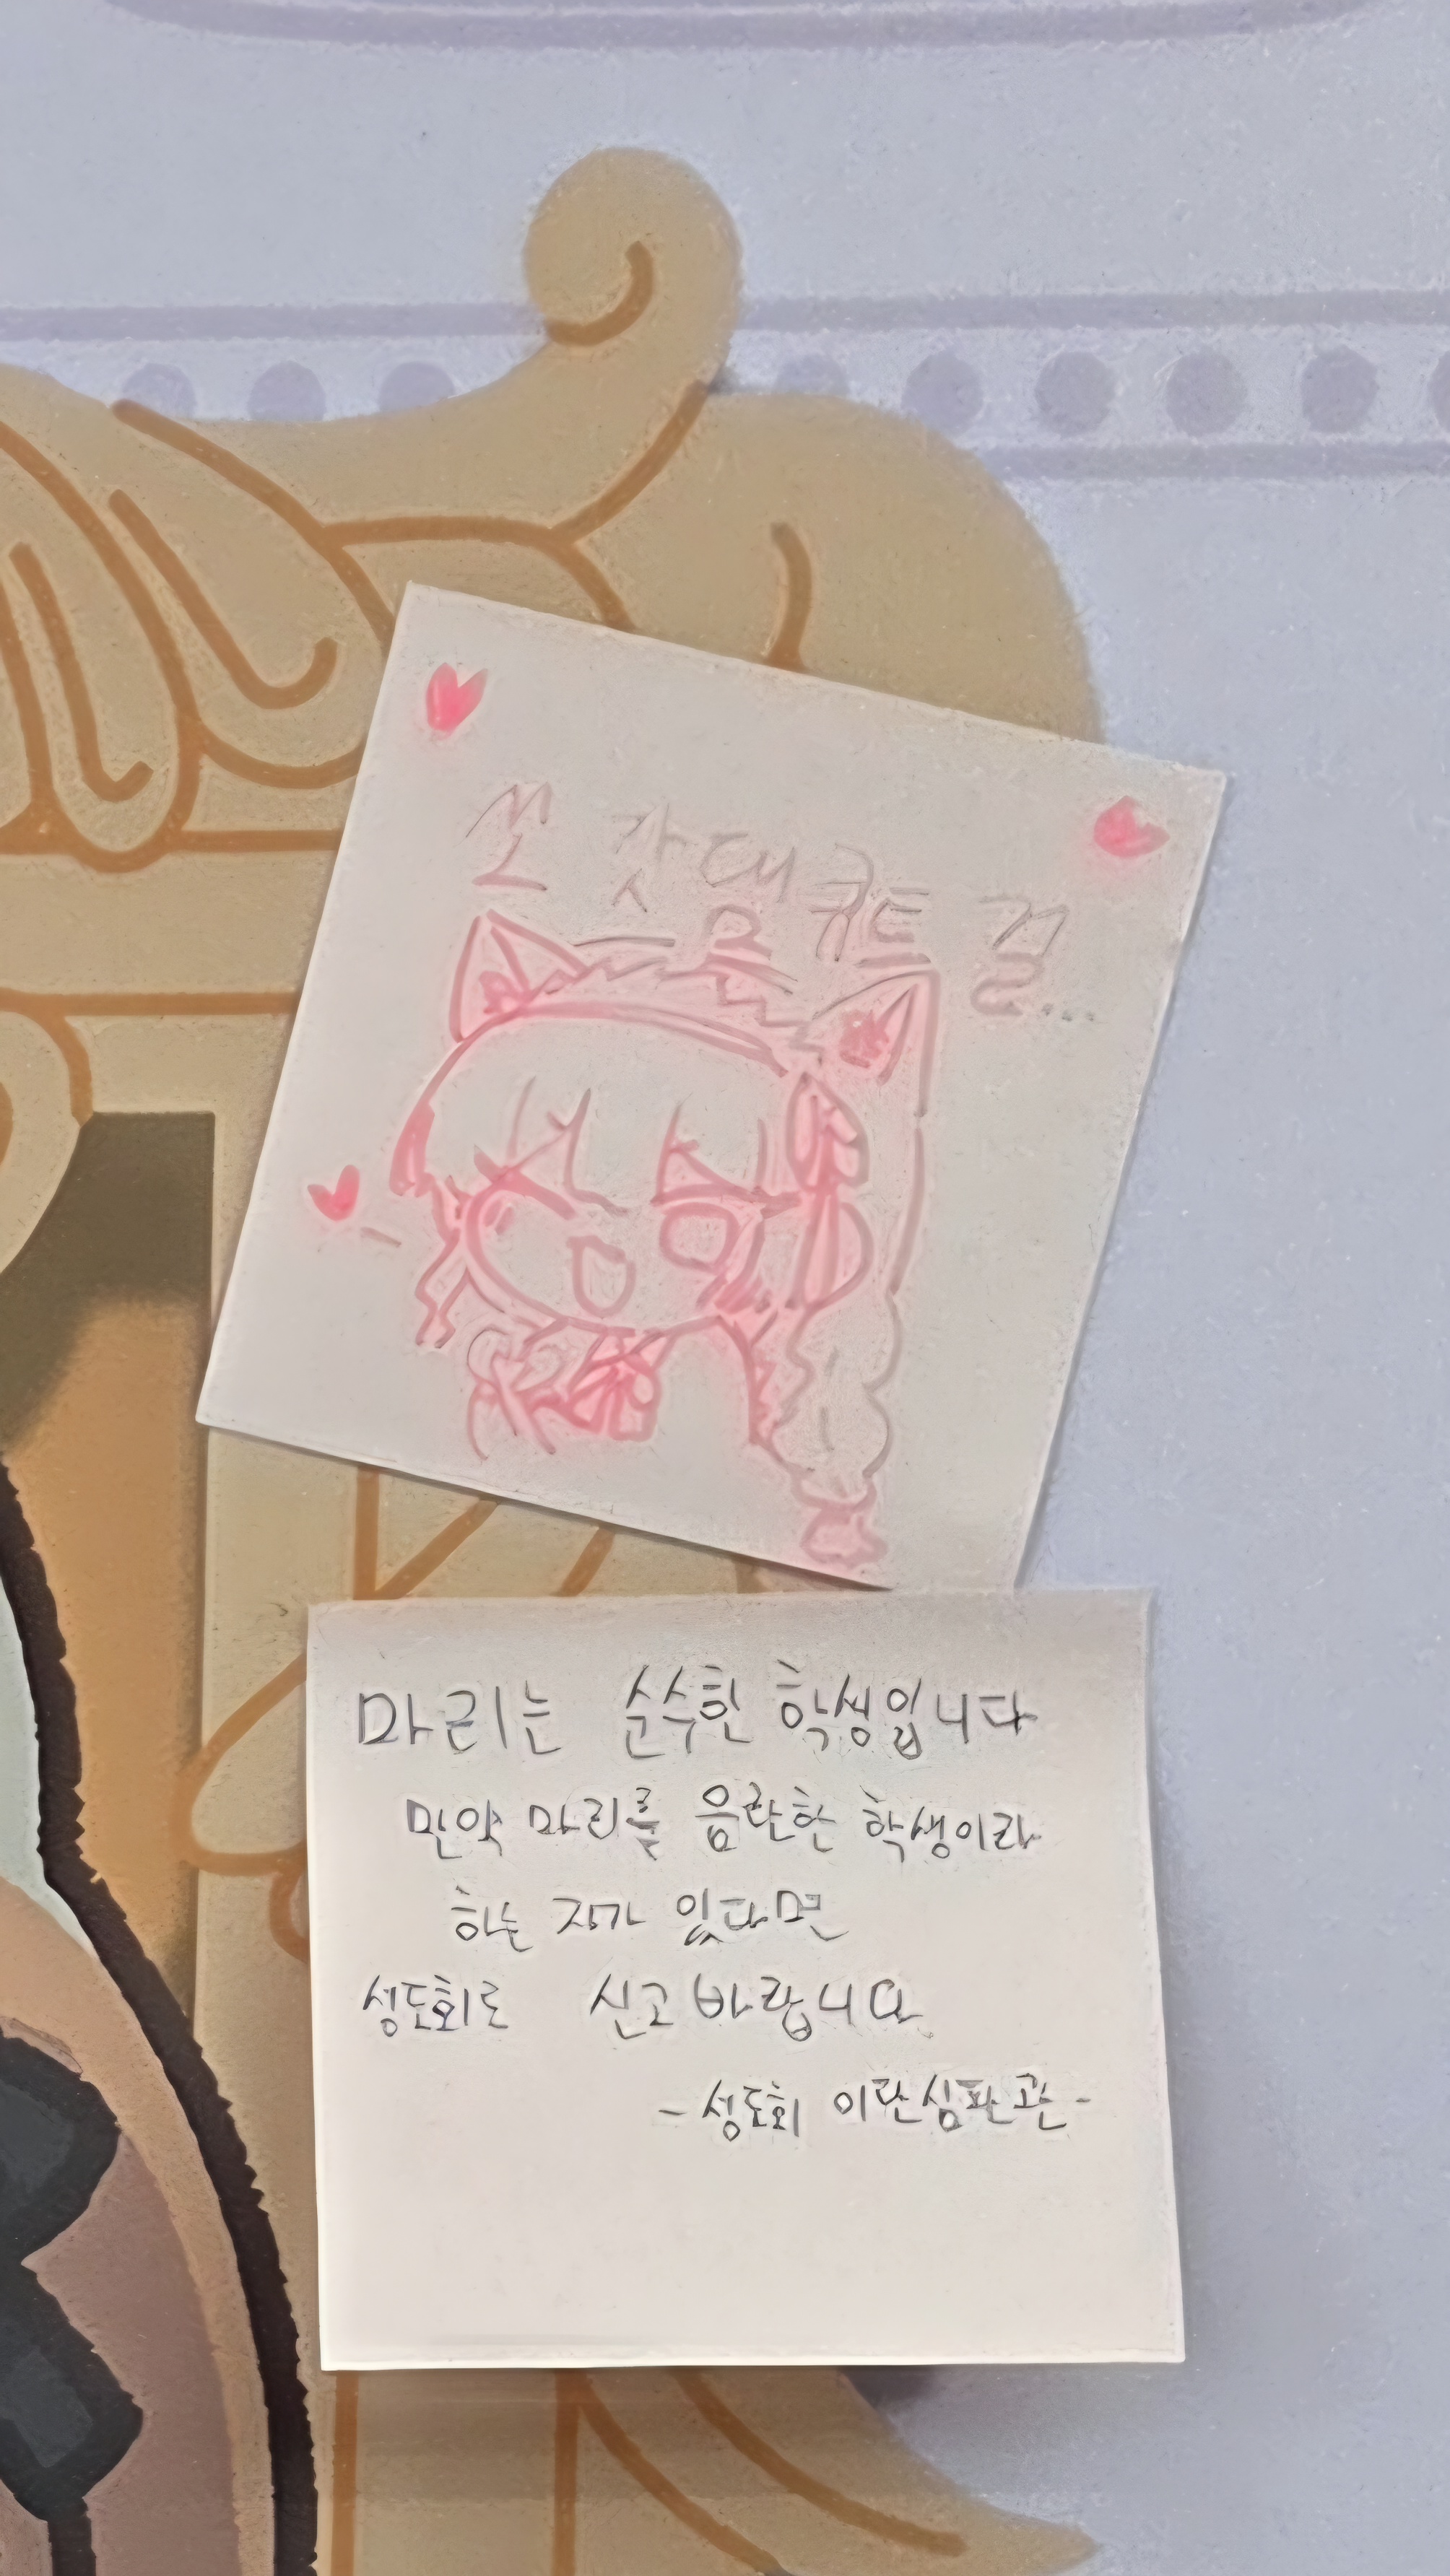 마리는 순수한 학생입니다
만약 마리를 음란한 학생이라
하는 자가 있다면
성도회로 신고 바랍니다.
- 성도회 이단심판관 -